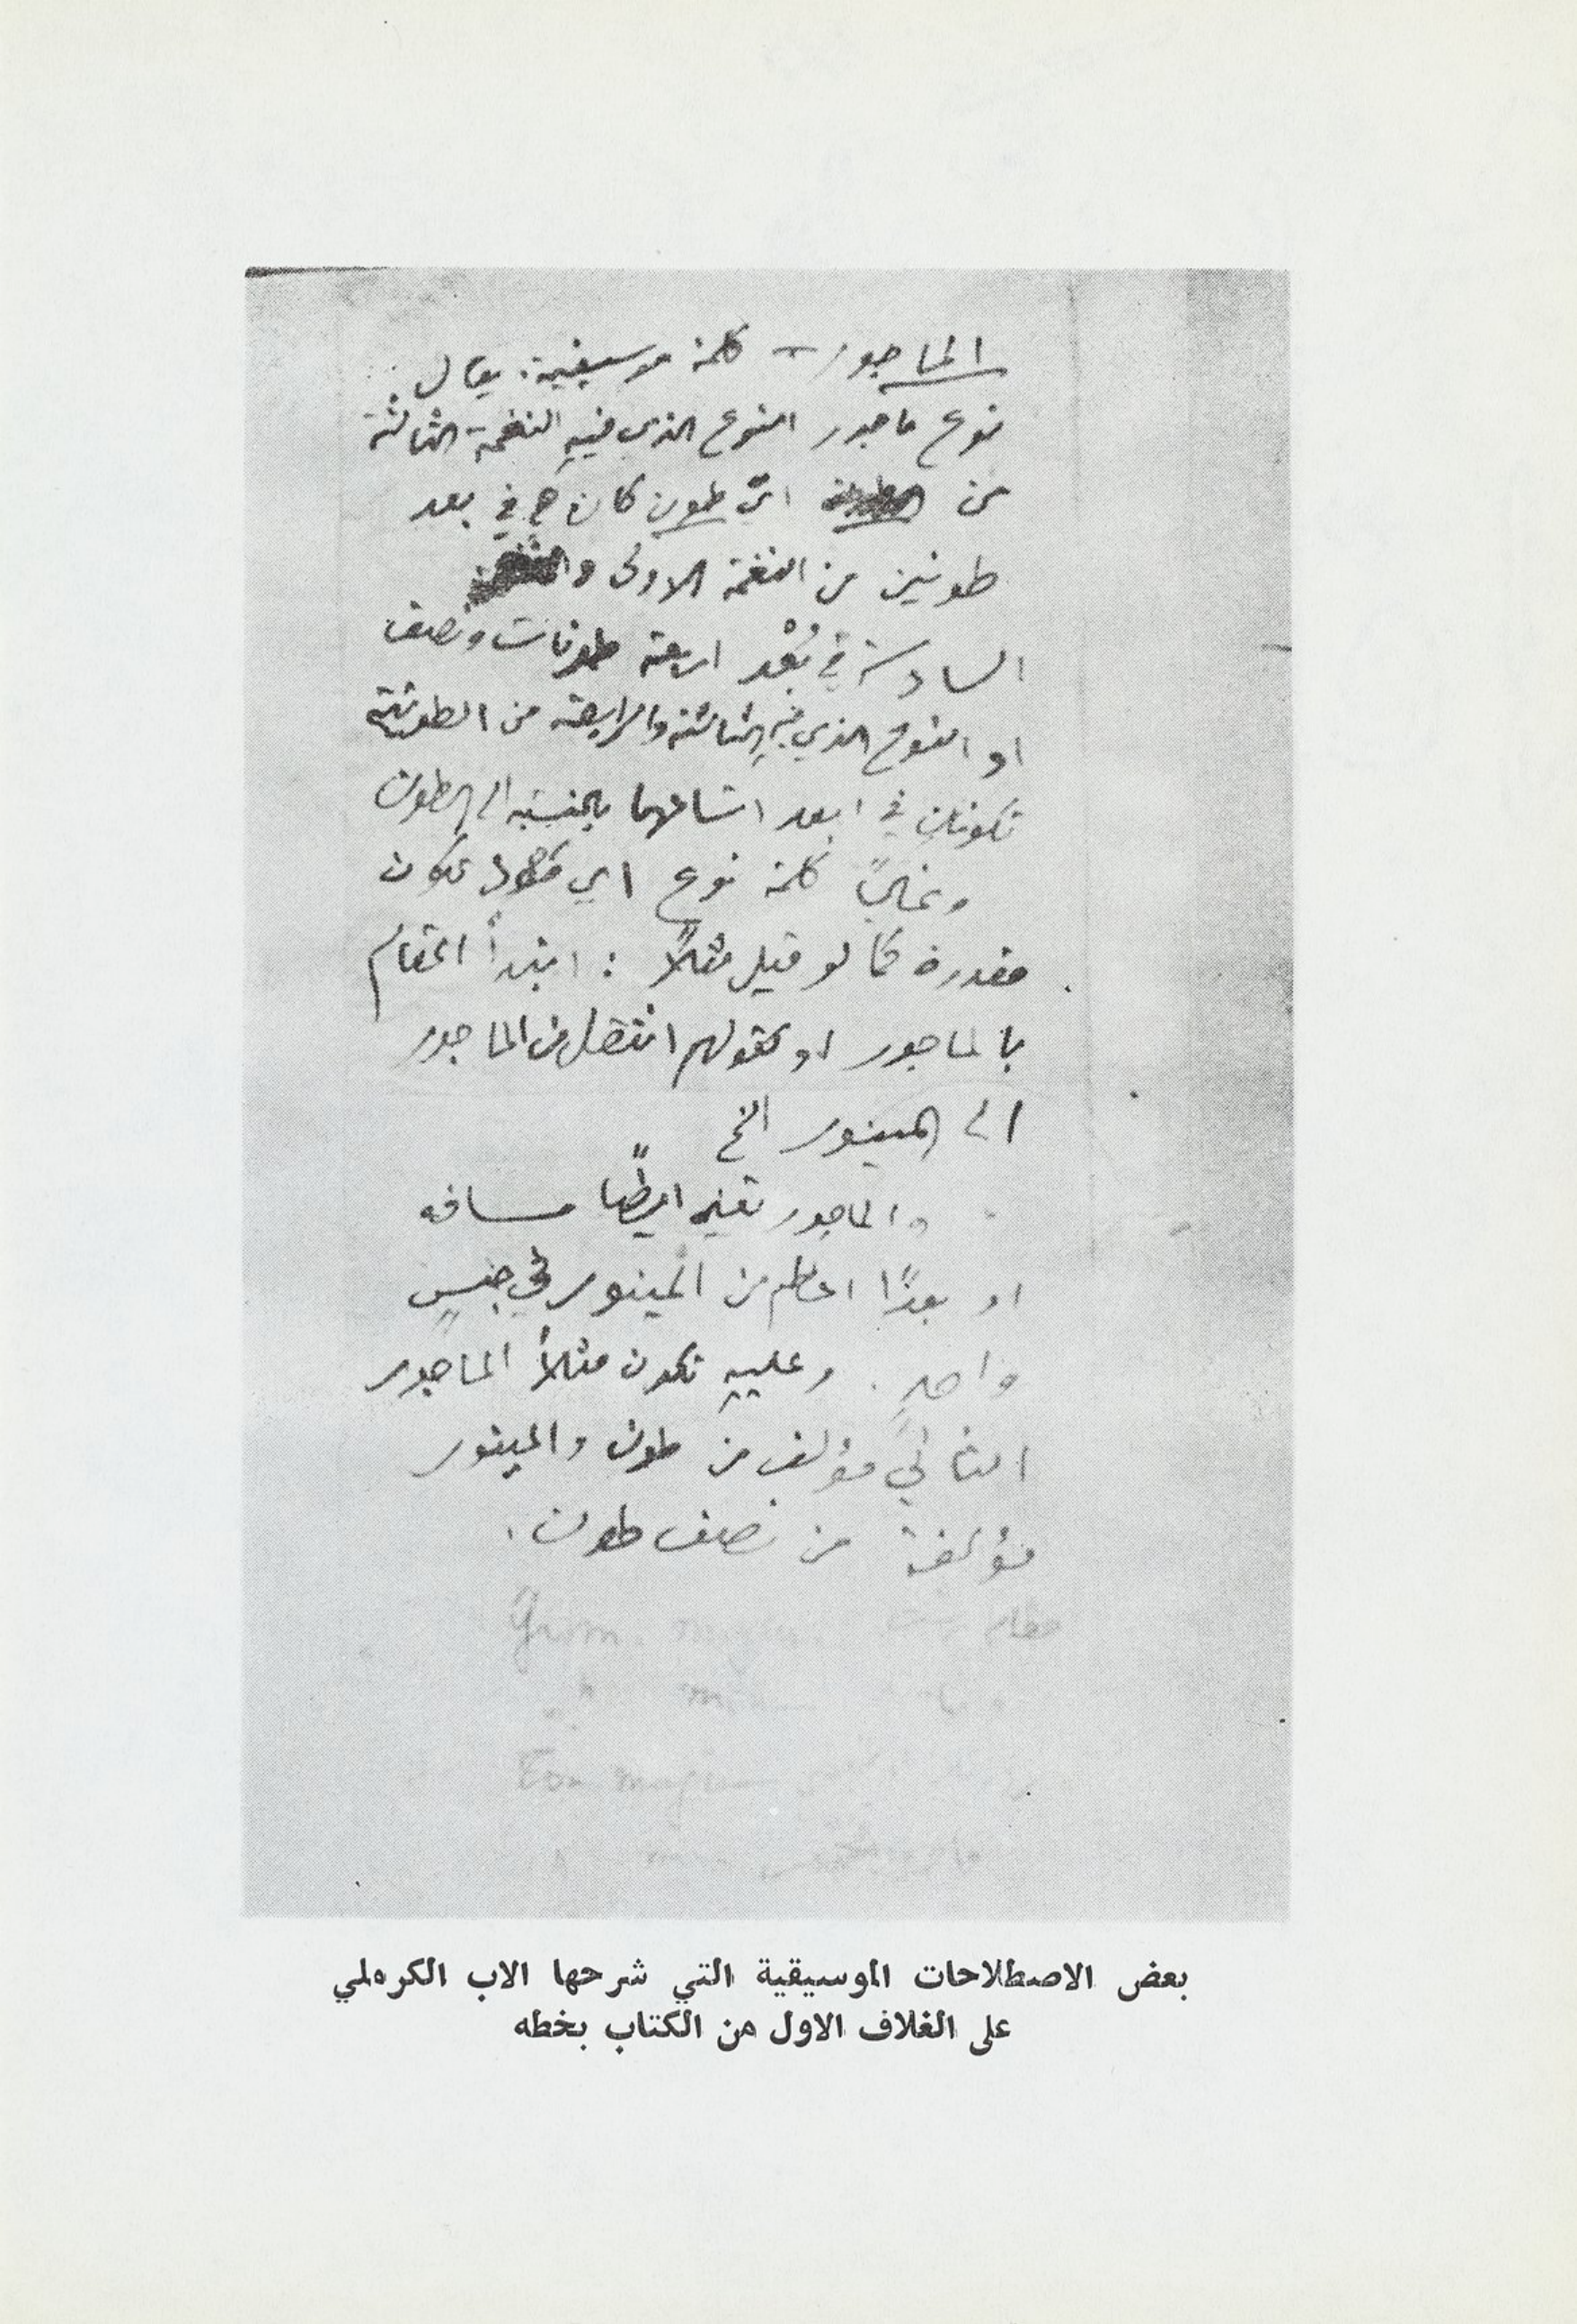 الماجور – كلمة موسيقية. يقال
نوع ماجور النوع الذي فيهِ النغمة الثالثة
من ايّ طون كان في بعد
طونين من النغمة الاولى و
السادسة في بُعْد اربعة طونات ونصف
او النوع الذي فيهِ الثالثة والرابعة من الطونية
تكونان في ابعد اتساعهما بالنسبة الى الطون
وغالباً كلمة نوع اي تكون
مقدرة كما لو قيل مثلاً : ابتدأ المقام
بالماجور او كقولهم انتقل من الماجور
الى المينور الخ
والماجور تعني ايضاً مسافة
او بعدًا اعظم من المينور في جنسٍ
واحدٍ . وعليهِ تكون مثلاً الماجور
الثاني مؤلف من طون والمينور
مؤلفة من نصف طون .
بعض الاصطلاحات الموسيقية التي شرحها الاب الكرملي
على الغلاف الاول من الكتاب بخطه